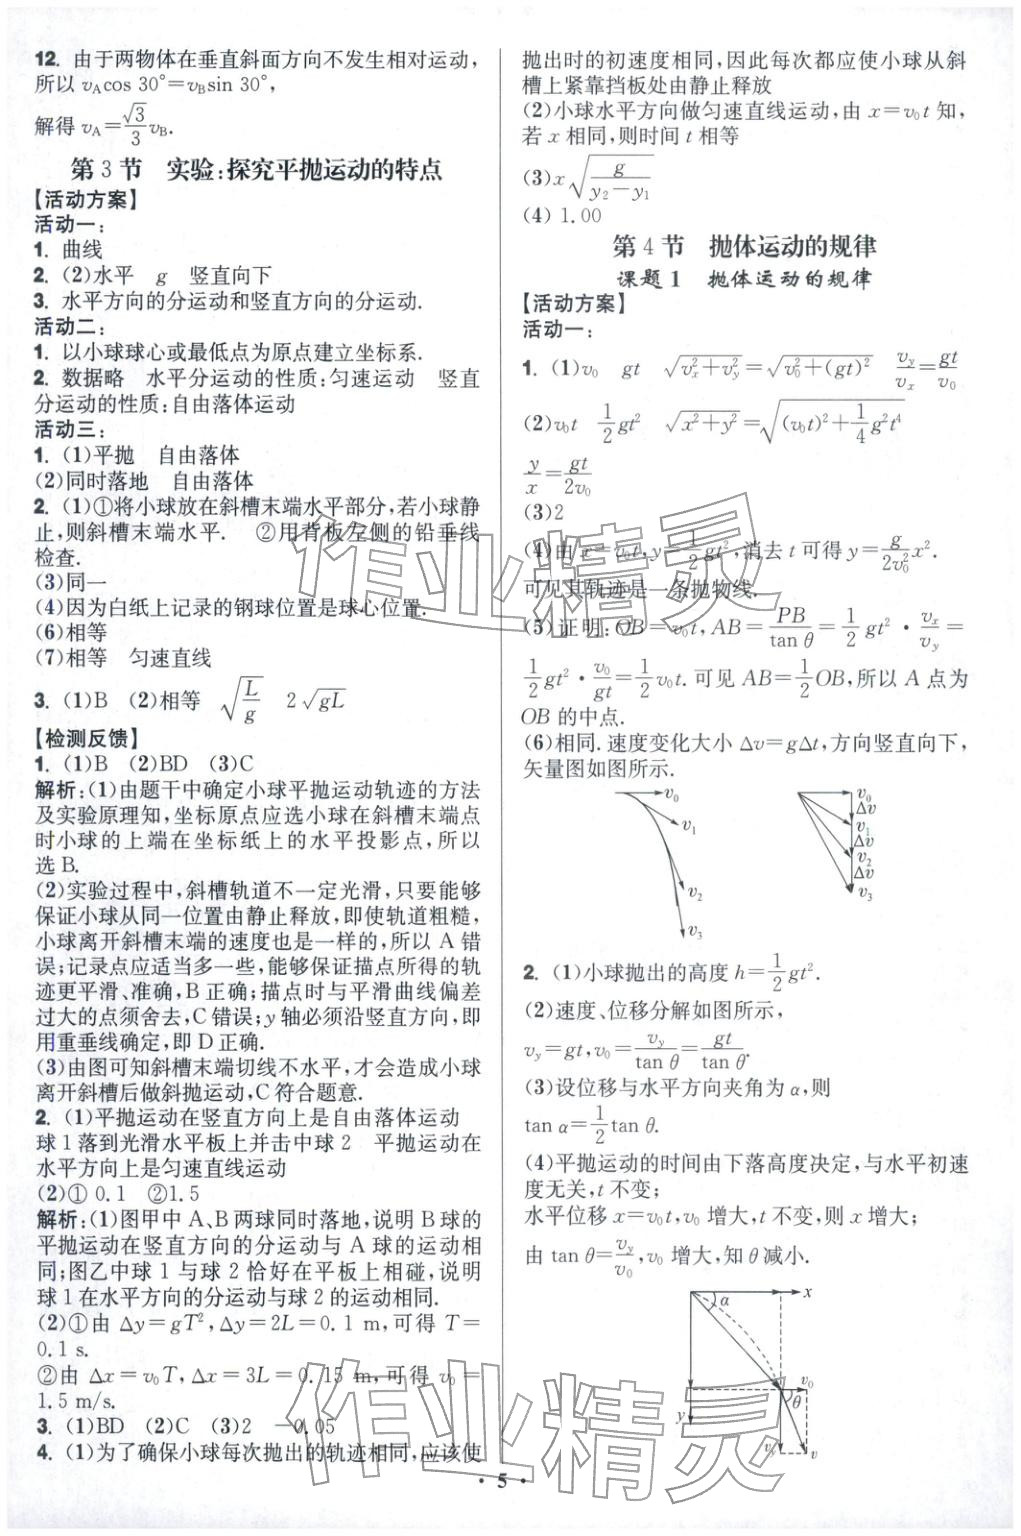 12. 由于两物体在垂直斜面方向不发生相对运动，
所以 vAcos 30°=vBsin 30°，
解得 vA=√3/3 vB.
第 3 节　实验：探究平抛运动的特点
【活动方案】
活动一：
1. 曲线
2. (2)水平　g　竖直向下
3. 水平方向的分运动和竖直方向的分运动.
活动二：
1. 以小球球心或最低点为原点建立坐标系.
2. 数据略　水平分运动的性质：匀速运动　竖直
分运动的性质：自由落体运动
活动三：
1. (1)平抛　自由落体
(2)同时落地　自由落体
2. (1)①将小球放在斜槽末端水平部分,若小球静
止,则斜槽末端水平.　②用背板左侧的铅垂线
检查.
(3)同一
(4)因为白纸上记录的钢球位置是球心位置.
(6)相等
(7)相等　匀速直线
3. (1)B　(2)相等　√(L/g)　2√(gL)
【检测反馈】
1. (1)B　(2)BD　(3)C
解析：(1)由题干中确定小球平抛运动轨迹的方法
及实验原理知,坐标原点应选小球在斜槽末端点
时小球的上端在坐标纸上的水平投影点,所以
选 B.
(2)实验过程中,斜槽轨道不一定光滑,只要能够
保证小球从同一位置由静止释放,即使轨道粗糙,
小球离开斜槽末端的速度也是一样的,所以 A 错
误;记录点应适当多一些,能够保证描点所得的轨
迹更平滑、准确,B 正确;描点时与平滑曲线偏差
过大的点须舍去,C 错误;y 轴必须沿竖直方向,即
用重垂线确定,即 D 正确.
(3)由图可知斜槽末端切线不水平,才会造成小球
离开斜槽后做斜抛运动,C 符合题意.
2. (1)平抛运动在竖直方向上是自由落体运动
球 1 落到光滑水平板上并击中球 2　平抛运动在
水平方向上是匀速直线运动
(2)① 0.1　②1.5
解析：(1)图甲中 A、B 两球同时落地,说明 B 球的
平抛运动在竖直方向的分运动与 A 球的运动相
同;图乙中球 1 与球 2 恰好在平板上相碰,说明
球 1 在水平方向的分运动与球 2 的运动相同.
(2)①由 Δy=gT²,Δy=2L=0.1 m,可得 T=
0.1 s.
②由 Δx=v₀T,Δx=3L=0.15 m,可得 v₀=
1.5 m/s.
3. (1)BD　(2)C　(3)2　-0.05
4. (1)为了确保小球每次抛出的轨迹相同,应该使
抛出时的初速度相同,因此每次都应使小球从斜
槽上紧靠挡板处由静止释放
(2)小球水平方向做匀速直线运动,由 x=v₀t 知,
若 x 相同,则时间 t 相等
(3)x√(g/(y₂-y₁))
(4) 1.00
第 4 节　抛体运动的规律
课题 1　抛体运动的规律
【活动方案】
活动一：
1. (1)v₀　gt　√(vx²+vy²)=√(v₀²+(gt)²)　vy/vx=gt/v₀
(2)v₀t　1/2 gt²　√(x²+y²)=√((v₀t)²+1/4 g²t⁴)
y/x=gt/2v₀
(3)2
(4)由 x=v₀t,y=1/2 gt²,消去 t 可得 y=g/2v₀² x².
可见其轨迹是一条抛物线.
(5)证明:OB=v₀t,AB=PB/tan θ=1/2 gt²·vx/vy=
1/2 gt²·v₀/gt=1/2 v₀t.可见 AB=1/2 OB,所以 A 点为
OB 的中点.
(6)相同.速度变化大小 Δv=gΔt,方向竖直向下,
矢量图如图所示.
v₀
v₁
v₂
v₃
v₀
Δv
v₁
Δv
v₂
Δv
v₃
2. (1)小球抛出的高度 h=1/2 gt².
(2)速度、位移分解如图所示,
vy=gt,v₀=vy/tan θ=gt/tan θ.
(3)设位移与水平方向夹角为 α,则
tan α=1/2 tan θ.
(4)平抛运动的时间由下落高度决定,与水平初速
度无关,t 不变;
水平位移 x=v₀t,v₀ 增大,t 不变,则 x 增大;
由 tan θ=vy/v₀,v₀ 增大,知 θ 减小.
x
α
v₀
θ
y
vy
v
· 5 ·
作业精灵
作业精灵